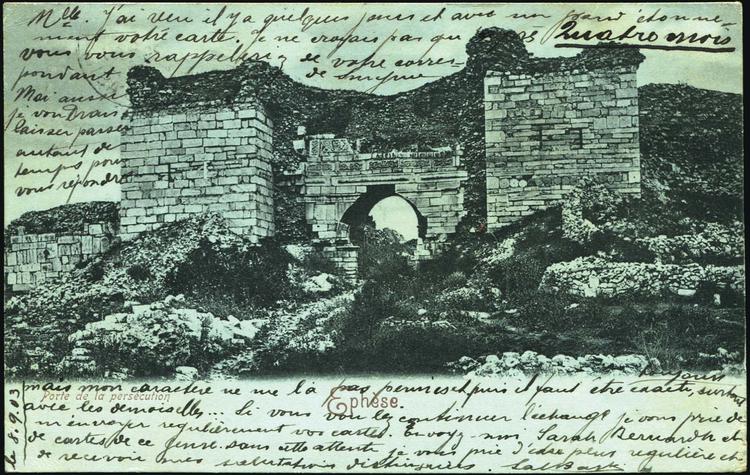 Mlle. J'ai vu il y a quelques jours et avec un grand étonne-
ment votre carte. Je ne croyais pas que
Quatre mois
vous vous rappeliriez de votre corres-
pondant de Smyrne
Moi aussi
je voudrais
laisser passer
autant de
temps pour
vous répondre
mais mon caractère ne me l'a pas permis et puis il faut être exacts, surtout
toujours
Porte de la persécution
Ephèse.
avec les demoiselles... Si vous voulez continuer l'échange je vous prie de
m'envoyer regulièrement vos cartes. Envoyez-moi, Sarah Bernardt et
de cartes de ce genre. Dans cette attente je vous prie d'être plus regulière et
de recevoir mes salutations distinguées
le 8.9.03